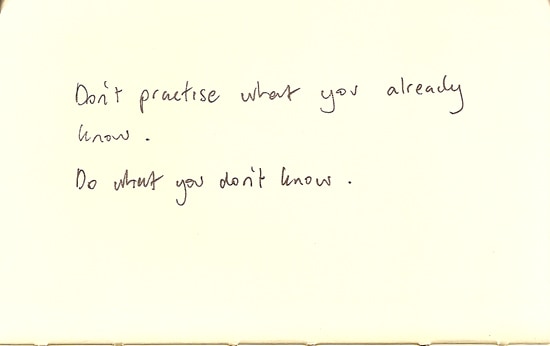 Don't practise what you already
know.
Do what you don't know.